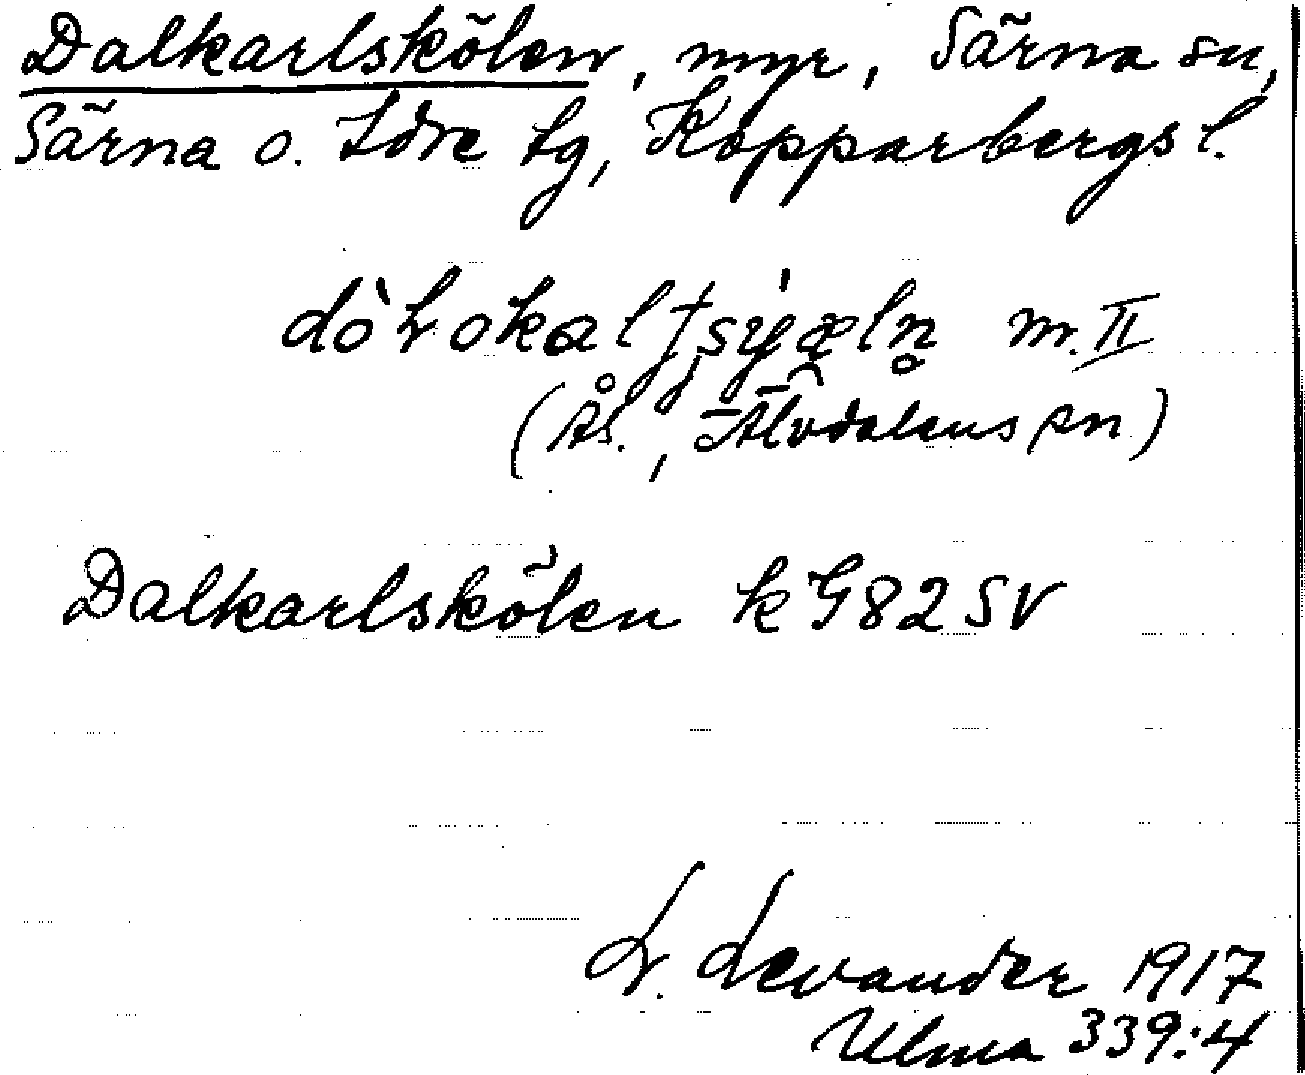 Dalkarlskölen, myr, Särna sn,
Särna o. Idre tg, Kopparbergs l.
m. II
(Ås., Älvdalens sn)
Dalkarlskölen k G82 SV
L. Levander 1917
Ulma 339:4